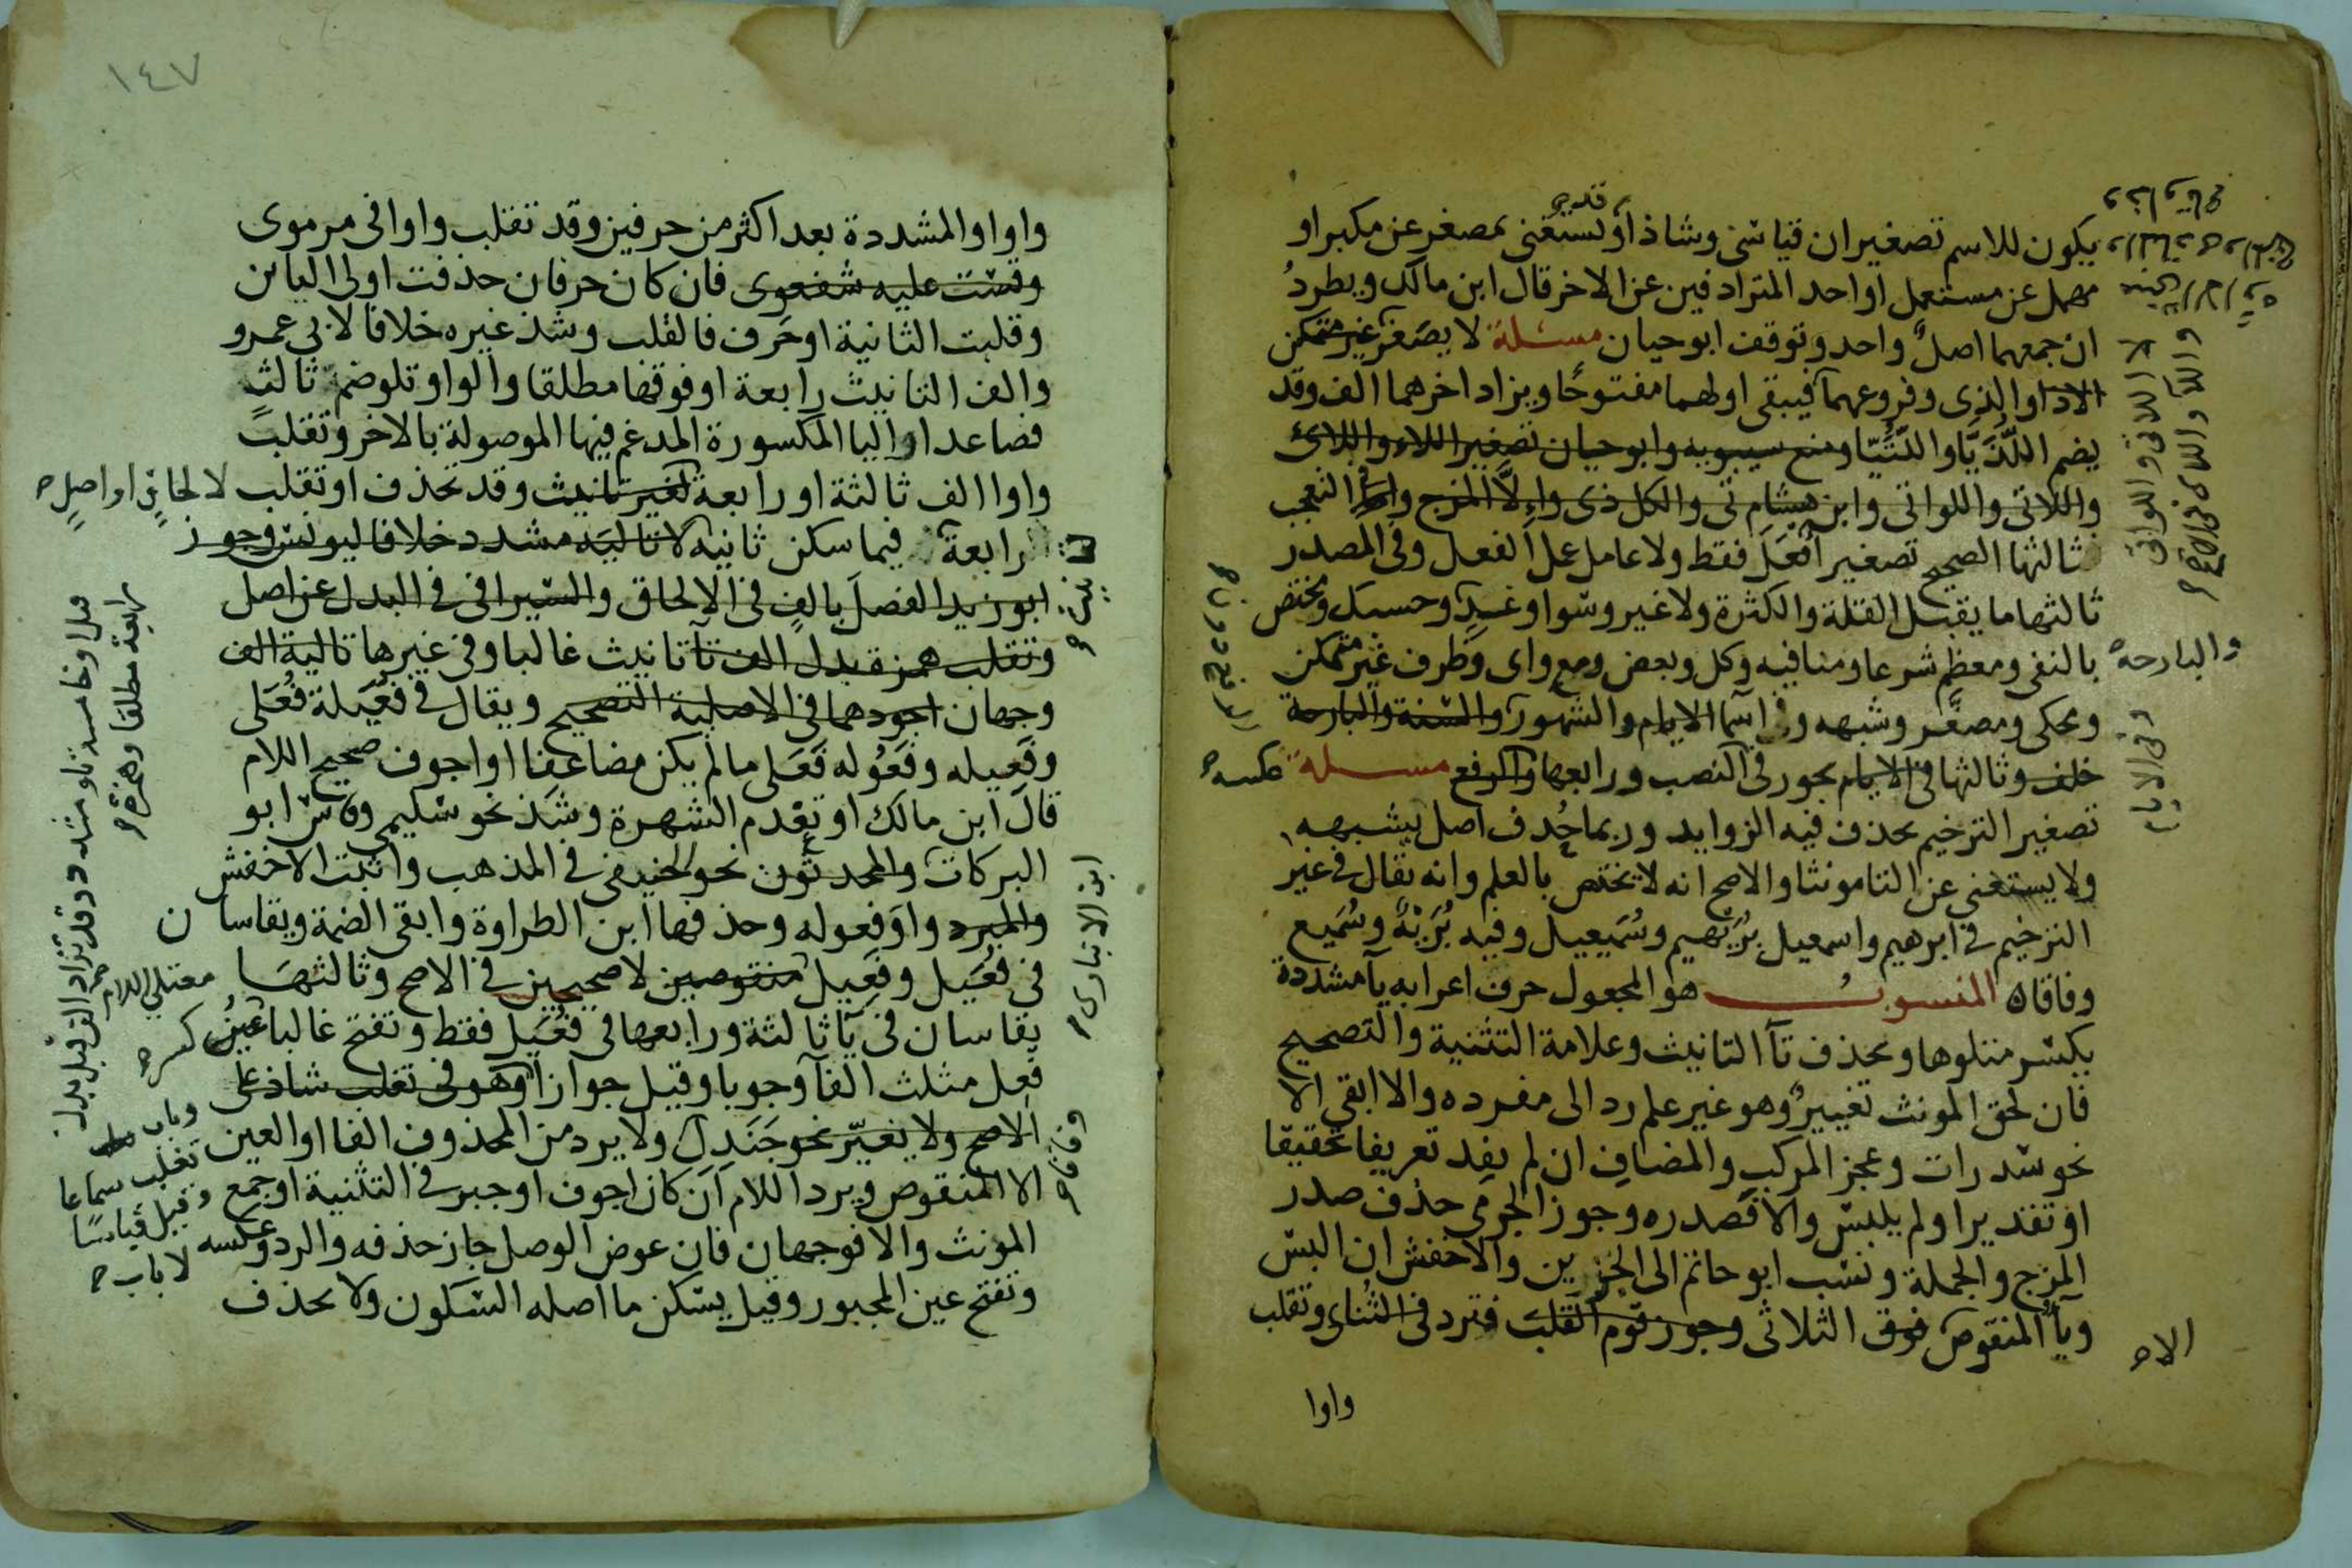 يكون للاسم تصغيران قياسي وشاذ او يستغنى بمصغر عن مكبر او
مهمل عن مستعمل او احد المترادفين عن الاخر قال ابن مالك ويطرد
ان جمعهما اصل واحد وتوقف ابو حيان مسئلة لا يصغر غير متمكن
الا ذا والذي وفروعهما فيبقى اولهما مفتوحا ويزاد اخرهما الف وقد
يضم اللُّذَيَّا واللُّتَيّا ومنع سيبويه وابو حيان تصغير اللاء واللائي
واللاتي واللواتي وابن هشام تي والكل ذي واءلا المزج وافعل التعجب
ثالثها الصحيح تصغير اَفعَل فقط ولا عامل عمل الفعل وفي المصدر
ثالثها ما يقبل القلة والكثرة ولا غير وسوا وغد وحسبك ومختص
والبارحة
بالنفي ومعظم شرعا ومنافيه وكل وبعض ومع واي وظرف غير متمكن
ومحكي ومصغر وشبهه وفي اسما الايام والشهور والسنة والبارحة
خلف وثالثها في الايام يجوز في النصب ورابعها والرفع مسلة عكسه
تصغير الترخيم بحذف فيه الزوايد وربما حُذف اصل يشبهه
ولا يستغنى عن التا مونثا والاصح انه لا يختص بالعلم وانه يقال في غير
الترخيم في ابرهيم واسمعيل بُرَيهيم وسُمَيعيل وفيه بُرَيْهٌ وسُمَيع
وفاقاه المنسوب هو المجعول حرف اعرابه يآ مشددة
يكسر متلوها وبحذف تآ التانيث وعلامة التثنية والتصحيح
فان لحق المونث تغيير وهو غير علم رد الى مفرده والا ابقي الا
نحو سدرات وعجز المركب والمضاف ان لم يفد تعريفا تحقيقا
او تقديرا ولم يلبس والا فصدره وجوز الجرمي حذف صدر
المزج والجملة ونسب ابو حاتم الى الجزين والاخفش ان البس
ويآ المنقوص فوق الثلاثي وجوز قوم القلب فترد في الثنائي وتقلب
واوا
لا اللاتي واللواتي
وفي الايام
الا
١٤٧
واوا والمشددة بعد اكثر من حرفين وقد تقلب واوا في مرموي
وقست عليه شفعوي فان كان حرفان حذفت اولى اليائين
وقلبت الثانية او حرف فالقلب وشذ غيره خلافا لابي عمرو
والف التانيث رابعة او فوقها مطلقا والواو تلو ضم ثالث
فصاعدا واليا المكسورة المدغم فيها الموصولة بالاخر وتقلب
واوا الف ثالثة او رابعة لغير تانيث وقد تحذف او تقلب لا لحاق او اصل
رابعة فيما سكن ثانيه لا تاليه مشدد خلافا ليونس وجوز
ابو زيد الفصل بالف في الالحاق والسيرافي في البدل عن اصل
وتقلب همزة بدل الف تآ تانيث غالبا وفي غيرها تالية الف
وجهان اجودهما في الاصلية التصحيح ويقال في فُعَيلة فُعَلي
وفَعيله وفَعُوله فَعَلي ما لم يكن مضاعفا او اجوف صحيح اللام
قال ابن مالك او تقدم الشهرة وشذ نحو سليمي وقاس ابو
البركات والمحدثون نحو الحنيفي في المذهب واثبت الاخفش
والمبرد واو فعوله وحذفها ابن الطراوة وابقى الضمة ويقاسان
في فُعَيل وفَعِيل منقوصين لا صحيحين في الاصح وثالثها
يقاسان في يآ ثالثة ورابعها في فُعَيل فقط وتفتح غالبا عينُ
فعل مثلث الفآ وجوبا وقيل جوازا وهو في تغلب شاذ على
الاصح ولا يغيّر نحو جَنَدِل ولا يرد من المحذوف الفا او العين
الا المنقوص ويرد اللام ان كان اجوف او جبر في التثنية او جمع
المونث والا فوجهان فان عوض الوصل جاز حذفه والرد وعكسه
وتفتح عين المجبور وقيل يسكن ما اصله السكون ولا يحذف
معتلي اللام
كسره
وباب
تغلب سماعا
وقيل قياسا
لا باب
ابن الانباري
رابعة مطلقا وهمزة